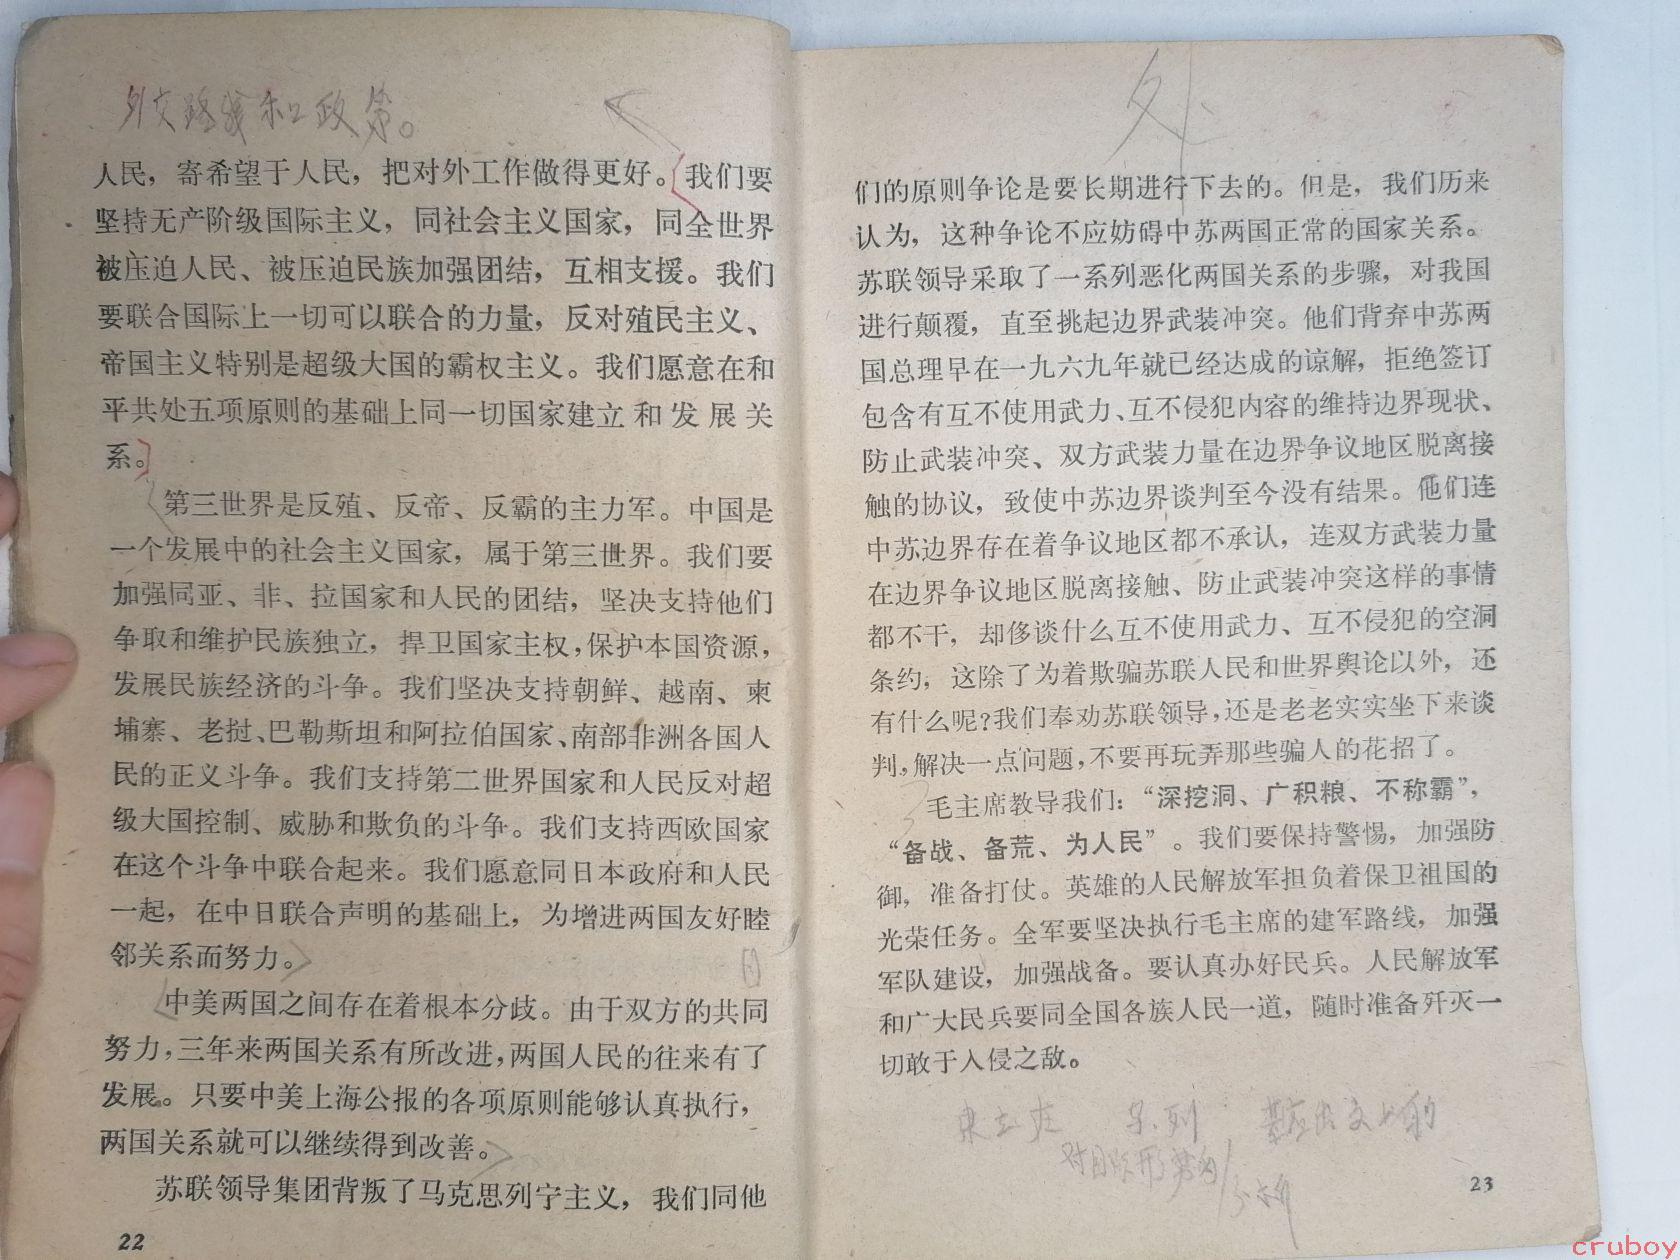 外交路线和政策。
人民，寄希望于人民，把对外工作做得更好。我们要
坚持无产阶级国际主义，同社会主义国家，同全世界
被压迫人民、被压迫民族加强团结，互相支援。我们
要联合国际上一切可以联合的力量，反对殖民主义、
帝国主义特别是超级大国的霸权主义。我们愿意在和
平共处五项原则的基础上同一切国家建立和发展关
系。
第三世界是反殖、反帝、反霸的主力军。中国是
一个发展中的社会主义国家，属于第三世界。我们要
加强同亚、非、拉国家和人民的团结，坚决支持他们
争取和维护民族独立，捍卫国家主权，保护本国资源，
发展民族经济的斗争。我们坚决支持朝鲜、越南、柬
埔寨、老挝、巴勒斯坦和阿拉伯国家、南部非洲各国人
民的正义斗争。我们支持第二世界国家和人民反对超
级大国控制、威胁和欺负的斗争。我们支持西欧国家
在这个斗争中联合起来。我们愿意同日本政府和人民
一起，在中日联合声明的基础上，为增进两国友好睦
邻关系而努力。
中美两国之间存在着根本分歧。由于双方的共同
努力，三年来两国关系有所改进，两国人民的往来有了
发展。只要中美上海公报的各项原则能够认真执行，
两国关系就可以继续得到改善。
苏联领导集团背叛了马克思列宁主义，我们同他
22
处
们的原则争论是要长期进行下去的。但是，我们历来
认为，这种争论不应妨碍中苏两国正常的国家关系。
苏联领导采取了一系列恶化两国关系的步骤，对我国
进行颠覆，直至挑起边界武装冲突。他们背弃中苏两
国总理早在一九六九年就已经达成的谅解，拒绝签订
包含有互不使用武力、互不侵犯内容的维持边界现状、
防止武装冲突、双方武装力量在边界争议地区脱离接
触的协议，致使中苏边界谈判至今没有结果。他们连
中苏边界存在着争议地区都不承认，连双方武装力量
在边界争议地区脱离接触、防止武装冲突这样的事情
都不干，却侈谈什么互不使用武力、互不侵犯的空洞
条约，这除了为着欺骗苏联人民和世界舆论以外，还
有什么呢？我们奉劝苏联领导，还是老老实实坐下来谈
判，解决一点问题，不要再玩弄那些骗人的花招了。
毛主席教导我们：“深挖洞、广积粮、不称霸”，
“备战、备荒、为人民”。我们要保持警惕，加强防
御，准备打仗。英雄的人民解放军担负着保卫祖国的
光荣任务。全军要坚决执行毛主席的建军路线，加强
军队建设，加强战备。要认真办好民兵。人民解放军
和广大民兵要同全国各族人民一道，随时准备歼灭一
切敢于入侵之敌。
23
cruboy